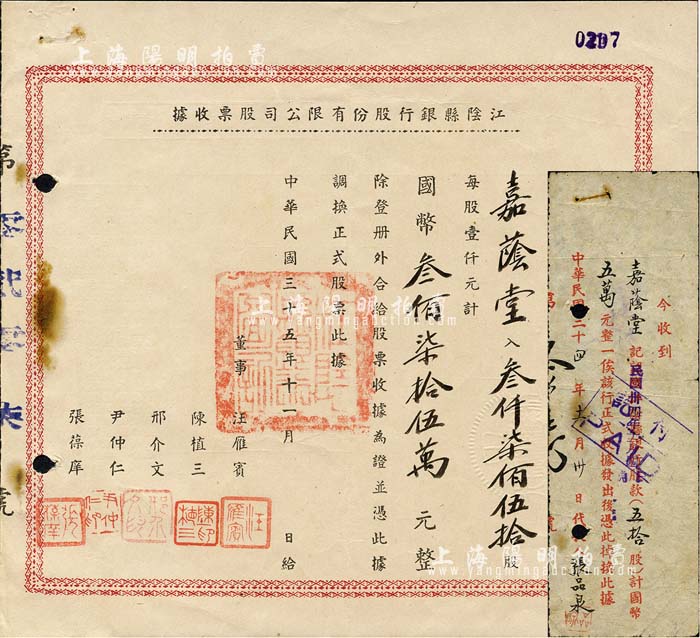 上海陽明拍賣
www.yangmingauction.com
江陰縣銀行股份有限公司股票收據
嘉蔭堂入叁仟柒佰伍拾股
每股壹仟元計
國幣叁佰柒拾伍萬元整
除登册外合給股票收據為證並憑此據
調換正式股票此據
中華民國三十五年十一月 日給
董事
汪雁賓
陳植三
邢介文
尹仲仁
張葆厚
今收到
嘉蔭堂記
股款(五拾股)計國幣
五萬元整一俟該行正式收據發出後憑此掉換此據
中華民國三十四年 月廿日代
張品泉
第
號
上海陽明拍賣
www.yangmingauction.com